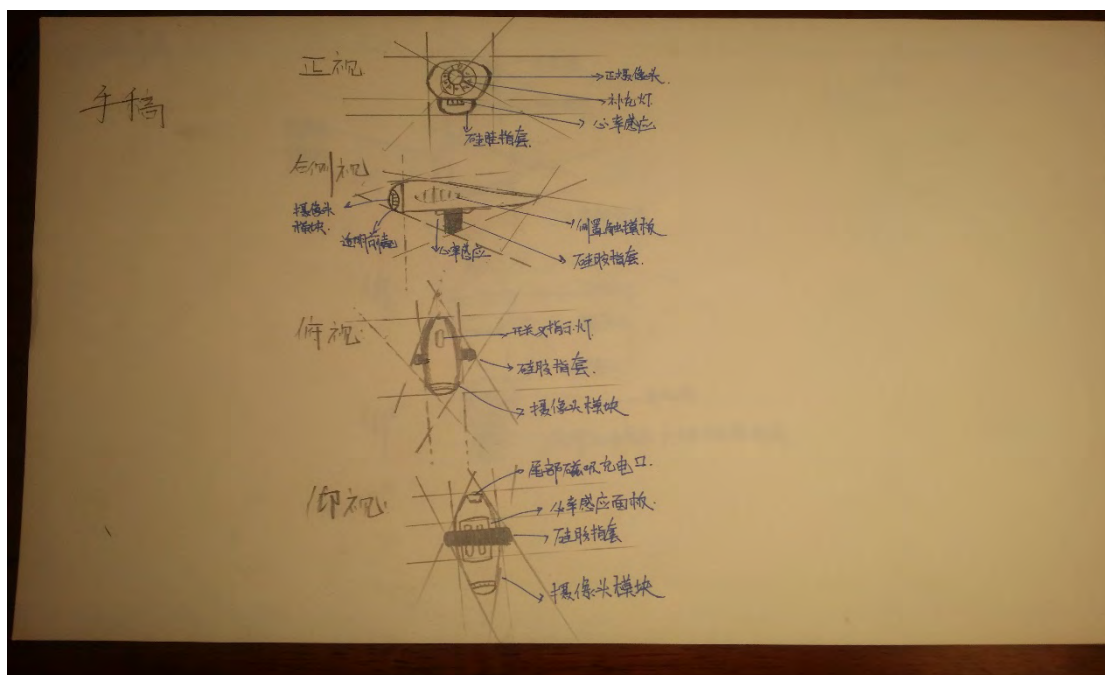 手稿
正视
正摄像头
补光灯
心率感应
硅胶指套
右侧视
摄像头
模块
透明前镜
心率感应
侧置触摸板
硅胶指套
俯视
开关及指示灯
硅胶指套
摄像头模块
仰视
尾部磁吸充电口
心率感应面板
硅胶指套
摄像头模块